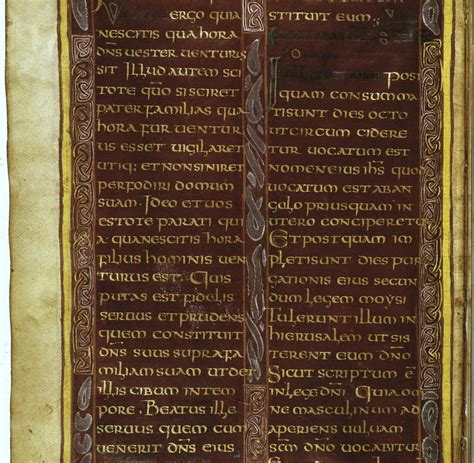 ergo quia
nescitis qua hora
dn̄s uester uenturus
sit Illud autem sci
tote quo si sciret
pater familias qua
hora fur uentur
us esset uigilaret
utiq: et non siniret
perfodiri domum
suam. Ideo et uos
estote parati qui
a qua nescitis hora
filius hominis uen
turus est. Quis
putas est fidelis
seruus et prudens
quem constituit
dn̄s suus supra fa
miliam suam ut det
illis cibum in tem
pore. Beatus ille
seruus quem cum
uenerit dn̄s eius
stituit eum
Posl
quam consumma
ti sunt dies octo
ut circum cidere
tur uocatum est
nomen eius ih̄s quod
uocatum est ab an
gelo priusquam in
utero conciperetur
Et postquam im
pleti sunt dies pur
gationis eius secun
dum legem moysi
Tulerunt illum in
hierusalem ut sis
terent eum dn̄o
Sicut scriptum ē
in lege dn̄i Quia om
ne masculinum ad
aperiens uuluam
sc̄m dn̄o uocabitur